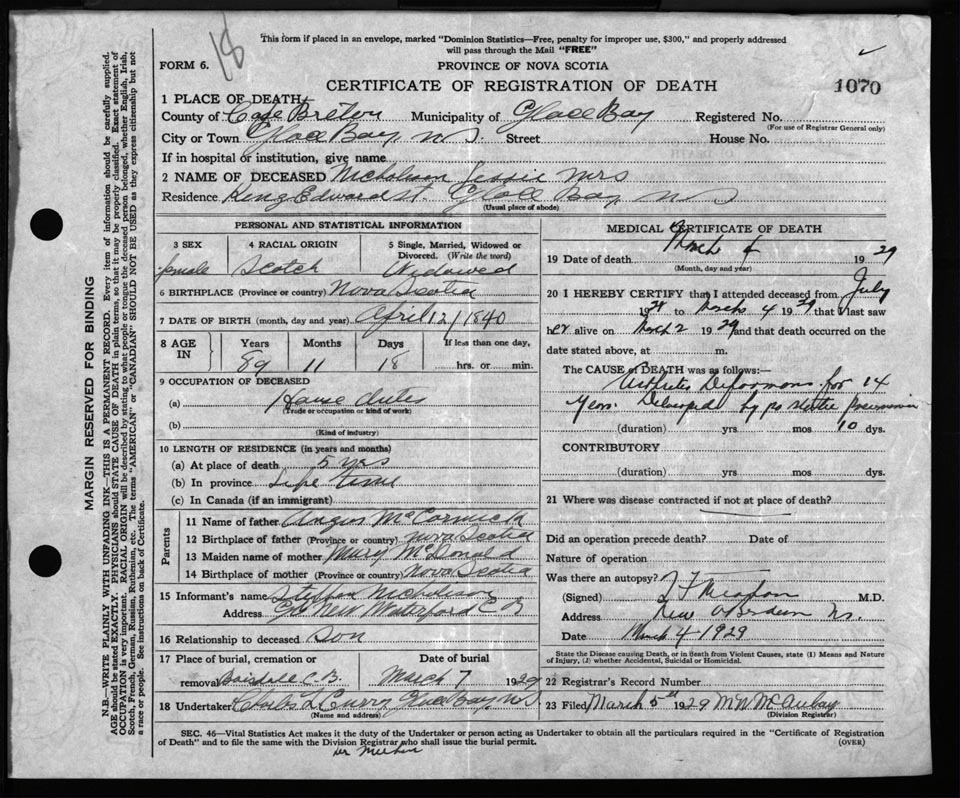 18
This form if placed in an envelope, marked "Dominion Statistics—Free, penalty for improper use, $300," and properly addressed
will pass through the Mail "FREE"
FORM 6.
PROVINCE OF NOVA SCOTIA
CERTIFICATE OF REGISTRATION OF DEATH
1070
1 PLACE OF DEATH
County of Cape Breton Municipality of Glace Bay Registered No.
(For use of Registrar General only)
City or Town Glace Bay N S. Street House No.
If in hospital or institution, give name
2 NAME OF DECEASED Nicholson Jessie Mrs
Residence King Edward St. Glace Bay N S
(Usual place of abode)
PERSONAL AND STATISTICAL INFORMATION
3 SEX female
4 RACIAL ORIGIN Scotch
5 Single, Married, Widowed or
Divorced. (Write the word)
Widowed
6 BIRTHPLACE (Province or country) Nova Scotia
7 DATE OF BIRTH (month, day and year) April 12/1840
8 AGE IN
Years Months Days If less than one day,
89 11 18 hrs. or min.
9 OCCUPATION OF DECEASED
(a) House duties
(Trade or occupation or kind of work)
(b)
(Kind of industry)
10 LENGTH OF RESIDENCE (in years and months)
(a) At place of death 5 yrs
(b) In province Life time
(c) In Canada (if an immigrant)
Parents
11 Name of father Angus McCormick
12 Birthplace of father (Province or country) Nova Scotia
13 Maiden name of mother Mary McDonald
14 Birthplace of mother (Province or country) Nova Scotia
15 Informant's name Stephen Nicholson
Address New Waterford C B
16 Relationship to deceased Son
17 Place of burial, cremation or Date of burial
removal Boisdale C. B. March 7 1929
18 Undertaker Charles L Curry Glace Bay N S
(Name and address)
MEDICAL CERTIFICATE OF DEATH
19 Date of death March 4 1929
(Month, day and year)
20 I HEREBY CERTIFY that I attended deceased from July
1928 to March 4 1929 that I last saw
her alive on March 2 1929 and that death occurred on the
date stated above, at m.
The CAUSE OF DEATH was as follows:—
Arthritis Deformans for 14
Years. Developed Pneumonia
(duration) yrs mos 10 dys.
CONTRIBUTORY
(duration) yrs mos dys.
21 Where was disease contracted if not at place of death?
Did an operation precede death? Date of
Nature of operation
Was there an autopsy?
(Signed) M.D.
Address New Aberdeen N.S.
Date March 4 1929
State the Disease causing Death, or in death from Violent Causes, state (1) Means and Nature
of Injury, (2) whether Accidental, Suicidal or Homicidal.
22 Registrar's Record Number
23 Filed March 5th 1929
(Division Registrar)
SEC. 46—Vital Statistics Act makes it duty of the Undertaker or person acting as Undertaker to obtain all the particulars required in the "Certificate of Registration
of Death" and to file the same with the Division Registrar who shall issue the burial permit.
(OVER)
MARGIN RESERVED FOR BINDING
N.B.—WRITE PLAINLY WITH UNFADING INK—THIS IS A PERMANENT RECORD. Every item of information should be carefully supplied.
AGE should be stated EXACTLY. PHYSICIANS should STATE CAUSE OF DEATH in plain terms, so that it may be properly classified. Exact statement of
OCCUPATION is very important. RACIAL ORIGIN will be described by stating to what people or tongue the deceased person belonged, whether English, Irish,
Scotch, French, German, Russian, Ruthenian, etc. The terms "AMERICAN" or "CANADIAN" SHOULD NOT BE USED as they express citizenship but not
a race or people. See instructions on back of Certificate.